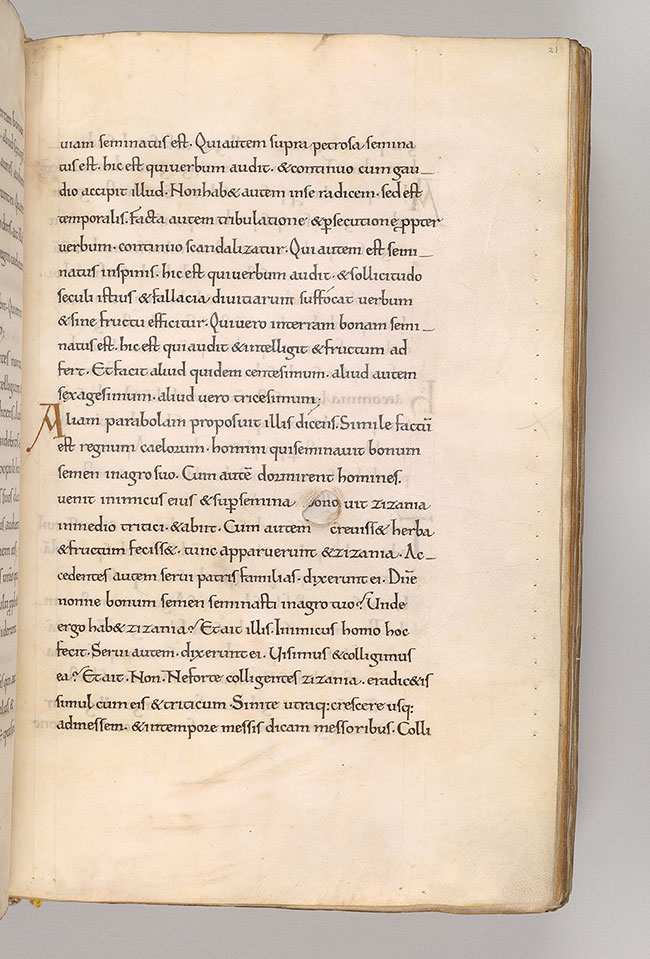 21
uiam seminatus est. Qui autem supra petrosa semina
tus est. hic est qui uerbum audit. & continuo cum gau_
dio accipit illud. Non hab& autem in se radicem. sed est
temporalis. Facta autem tribulatione & p̱secutione ꝓpter
uerbum. continuo scandalizatur. Qui autem est semi_
natus in spinis. hic est qui uerbum audit. & sollicitudo
seculi istius & fallacia diuitiarum suffocat uerbum
& sine fructu efficitur. Qui uero in terram bonam semi_
natus est. hic est qui audit & intelligit & fructum ad
fert. Et facit aliud quidem centesimum. aliud autem
sexagesimum. aliud uero tricesimum;
Aliam parabolam proposuit illis dicens. Simile factū
est regnum caelorum. homini qui seminauit bonum
semen in agro suo. Cum autē dormirent homines.
uenit inimicus eius & sup̱semina uit zizania
in medio tritici. & abiit. Cum autem creuiss& herba
& fructum feciss&. tunc apparuerunt & zizania. Ac_
cedentes autem serui patris familias. dixerunt ei. Dn̄e
nonne bonum semen seminasti in agro tuo? Unde
ergo hab& zizania? Et ait illis. Inimicus homo hoc
fecit. Serui autem. dixerunt ei. Uis imus & colligimus
ea? Et ait. Non. Ne forte colligentes zizania. eradic&is
simul cum eis & triticum. Sinite utraq: crescere usq:
ad messem. & in tempore messis dicam messoribus. Colli